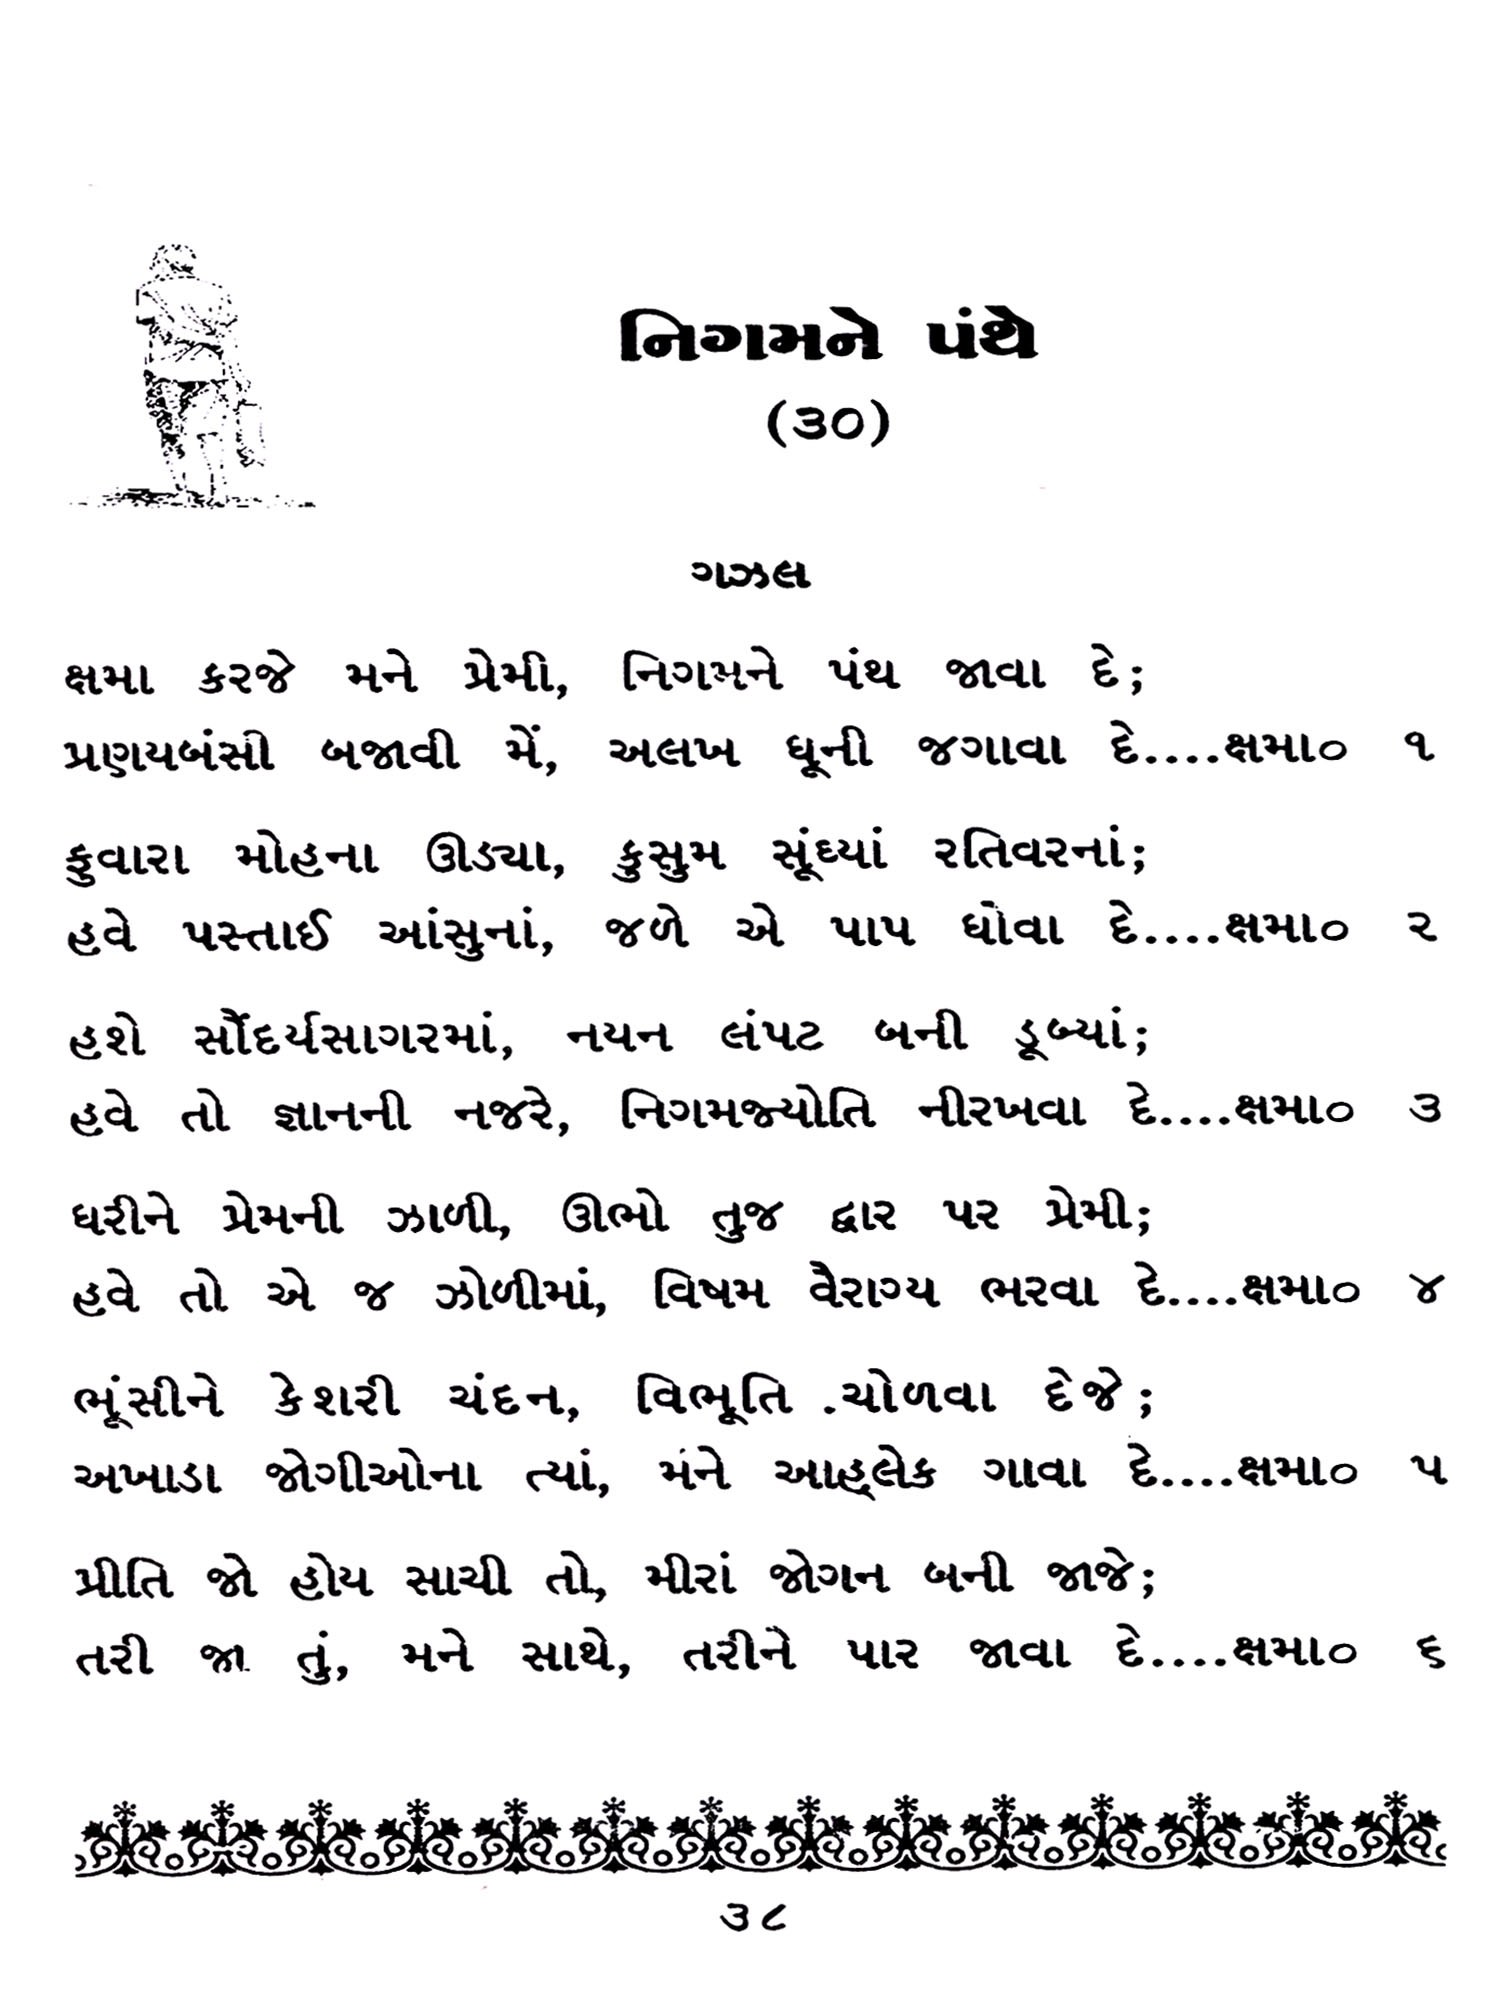 નિગમને પંથે
(૩૦)
ગઝલ
ક્ષમા કરજે મને પ્રેમી, નિગમને પંથ જાવા દે;
પ્રણયબંસી બજાવી મેં, અલખ ધૂની જગાવા દે....ક્ષમા૦ ૧
ફુવારા મોહના ઊડ્યા, કુસુમ સૂંઘ્યાં રતિવરનાં;
હવે પસ્તાઈ આંસુનાં, જળે એ પાપ ધોવા દે....ક્ષમા૦ ૨
હશે સૌંદર્યસાગરમાં, નયન લંપટ બની ડૂબ્યાં;
હવે તો જ્ઞાનની નજરે, નિગમજ્યોતિ નીરખવા દે....ક્ષમા૦ ૩
ધરીને પ્રેમની ઝાળી, ઊભો તુજ દ્વાર પર પ્રેમી;
હવે તો એ જ ઝોળીમાં, વિષમ વૈરાગ્ય ભરવા દે....ક્ષમા૦ ૪
ભૂંસીને કેશરી ચંદન, વિભૂતિ ચોળવા દેજે;
અખાડા જોગીઓના ત્યાં, મને આહ્લેક ગાવા દે....ક્ષમા૦ ૫
પ્રીતિ જો હોય સાચી તો, મીરાં જોગન બની જાજે;
તરી જા તું, મને સાથે, તરીને પાર જાવા દે....ક્ષમા૦ ૬
૩૮